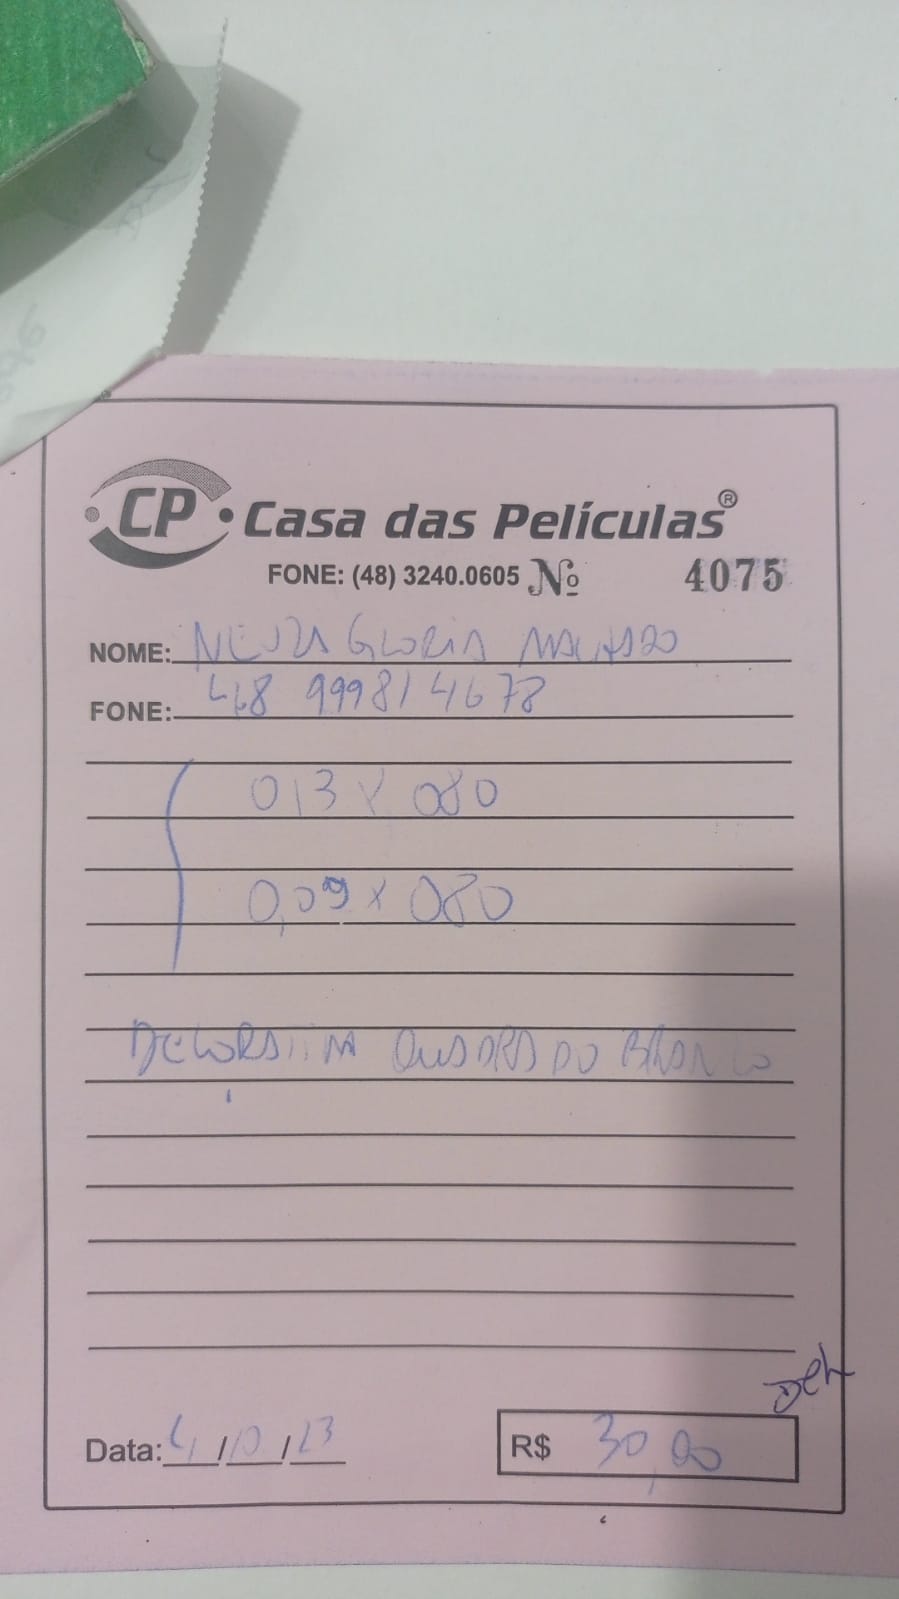 CP Casa das Películas®
FONE: (48) 3240.0605 Nº 4075
NOME: NEUZA GLORIA MACHADO
FONE: 48 99981 4678
013 X 080
0,09 X 080
DECORATIVA QUADRADO BRANCO
Data: 4/10/23 R$ 30,00